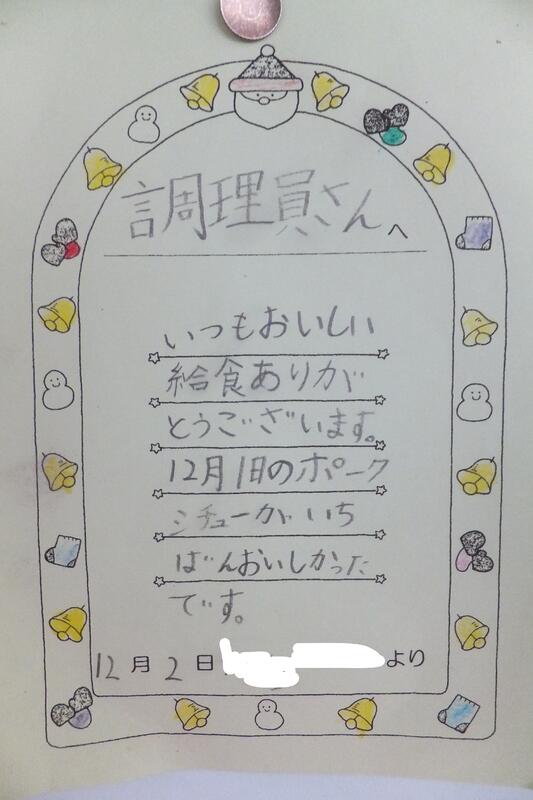 調理員さんへ
いつもおいしい
給食ありが
とうございます。
12月1日のポーク
シチューがいち
ばんおいしかった
です。
12月2日 より